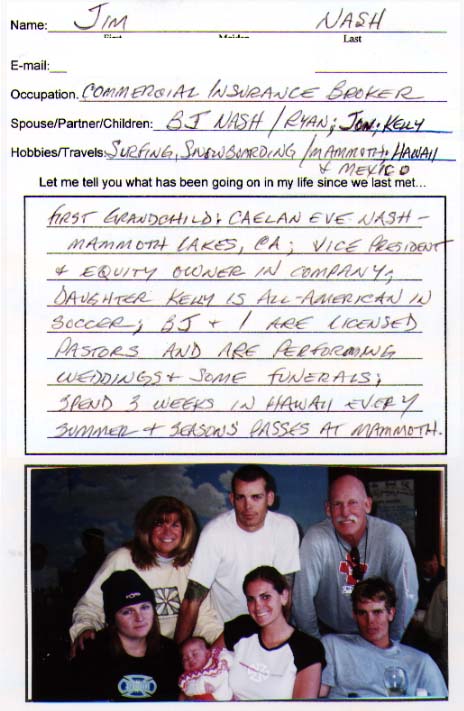 Name: JIM NASH
First Maiden Last
E-mail:
Occupation. COMMERCIAL INSURANCE BROKER
Spouse/Partner/Children: BJ NASH / RYAN; JON; KELLY
Hobbies/Travels: SURFING, SNOWBOARDING / MAMMOTH, HAWAII
& MEXICO
Let me tell you what has been going on in my life since we last met...
FIRST GRANDCHILD: CAELAN EVE NASH -
MAMMOTH LAKES, CA; VICE PRESIDENT
& EQUITY OWNER IN COMPANY;
DAUGHTER KELLY IS ALL-AMERICAN IN
SOCCER; BJ & I ARE LICENSED
PASTORS AND ARE PERFORMING
WEDDINGS & SOME FUNERALS;
SPEND 3 WEEKS IN HAWAII EVERY
SUMMER & SEASONS PASSES AT MAMMOTH.